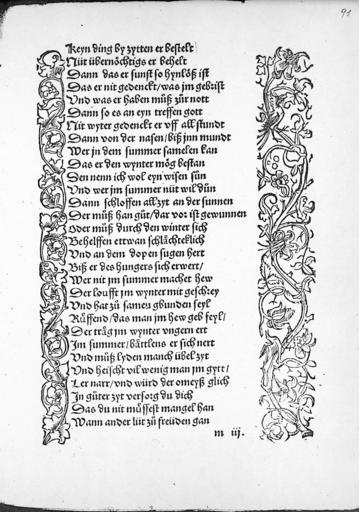 91
Keyn ding by zytten er bestelt
Nüt übernöchtigs er behelt
Dann das er sunst so hynlöß ist
Das er nit gedenckt/was jm gebrist
Vnd was er haben müß zůr nott
Dann so es an eyn treffen gott
Nit wyter gedenckt er vff all stundt
Dann von der nasen/biß jnn mundt
Wer jn dem summer samelen kan
Das er den wynter mög bestan
Den nenn ich wol eyn wisen sůn
Vnd wer jm summer nüt wil důn
Dann schloffen allzyt an der sunnen
Der můß han gůt/dar vor ist gewunnen
Oder můß durch den winter sich
Behelffen ettwan schlächteklich
Vnd an dem dopen sugen hert
Biß er des hungers sich erwert/
Wer nit jm summer machet hew
Der loufft jm wynter mit geschrey
Vnd hat zů samen gbunden seyl
Rüffend/das man jm hew geb feyl/
Der träg jm wynter vngern ert
Jm summer/bättlens er sich nert
Vnd můß lyden manch übel zyt
Vnd heischt vil wenig man jm gytt/
Ler narr/vnd würd der omeyß glich
Jn gůter zyt versorg du dich
Das du nit müssest mangel han
Wann ander lüt zů freüden gan
m iij.